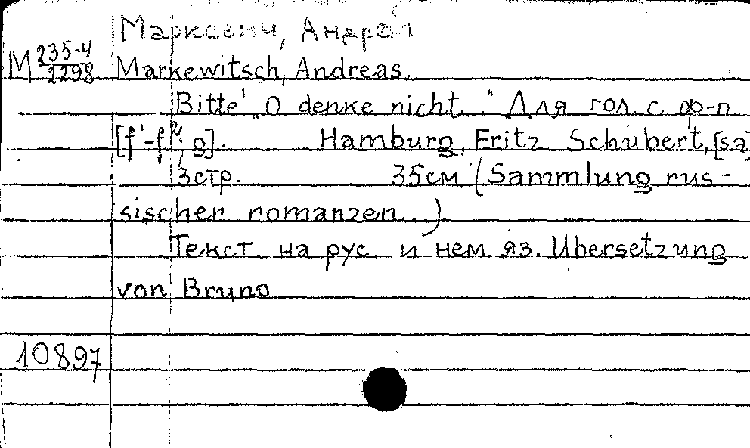 Маркевич, Андрей
М 235-4
1298
Markewitsch, Andreas.
Bitte „O denke nicht..." Для гол. с ф-п
[f'-f'', g]. Hamburg, Fritz Schubert, [sa]
3стр. 35см (Sammlung rus-
sischer romanzen...)
Текст на рус и нем яз. Ubersetzung
von Bruno
10897